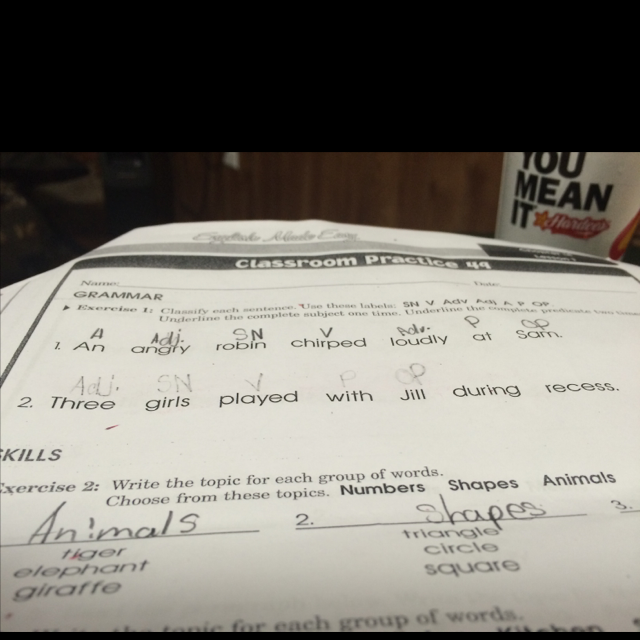 YOU
MEAN
IT Hardee's
Classroom Practice 44
Name: Date:
GRAMMAR
Exercise 1: Classify each sentence. Use these labels: SN V Adv Adj A P OP
Underline the complete subject one time. Underline the complete predicate two times
A Adj. SN V Adv. P OP
1. An angry robin chirped loudly at Sam.
Adj. SN V P OP
2. Three girls played with Jill during recess.
SKILLS
Exercise 2: Write the topic for each group of words.
Choose from these topics. Numbers Shapes Animals
Animals 2. Shapes 3.
tiger triangle
elephant circle
giraffe square
topic for each group of words.